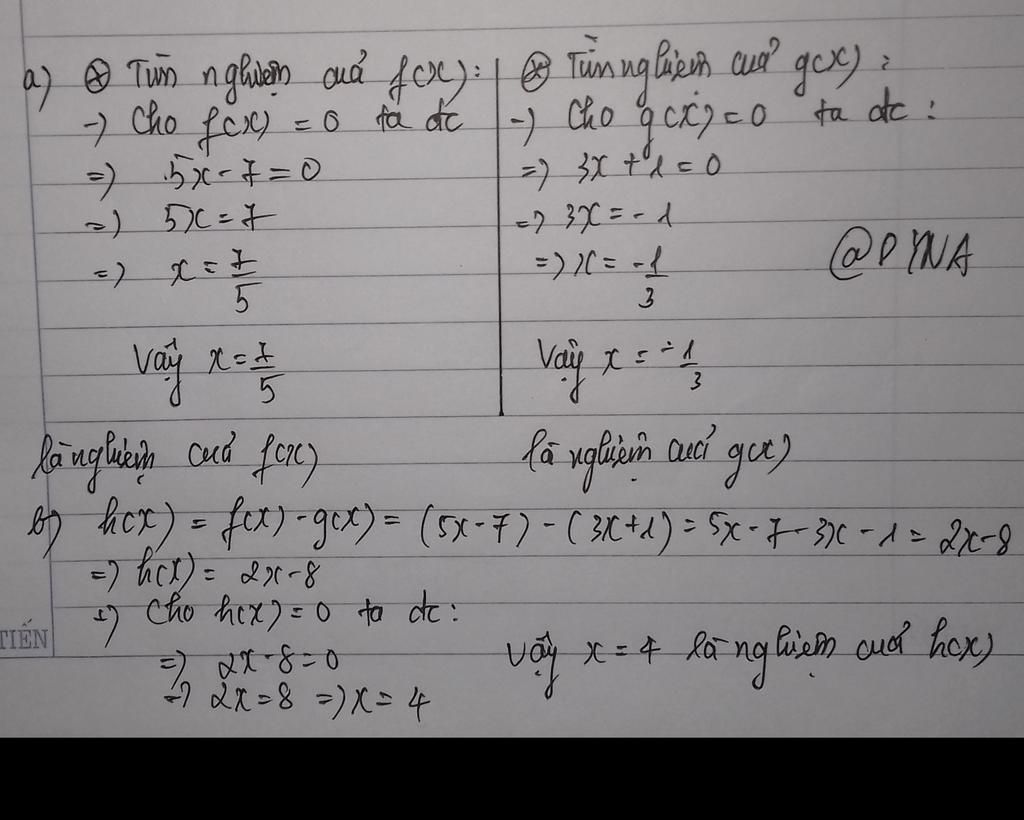 a) ⊛ Tìm nghiệm của f(x):
-) Cho f(x) = 0 ta đc
=) 5x - 7 = 0
=) 5x = 7
=) x = 7/5
Vậy x = 7/5
là nghiệm của f(x)
⊛ Tìm nghiệm của g(x):
-) Cho g(x) = 0 ta đc:
=) 3x + 1 = 0
=) 3x = -1
=) x = -1/3
Vậy x = -1/3
là nghiệm của g(x)
@DYNA
b) h(x) = f(x) - g(x) = (5x - 7) - (3x + 1) = 5x - 7 - 3x - 1 = 2x - 8
=) h(x) = 2x - 8
=) Cho h(x) = 0 ta đc:
=) 2x - 8 = 0
=) 2x = 8 =) x = 4
Vậy x = 4 là nghiệm của h(x)
TIẾN